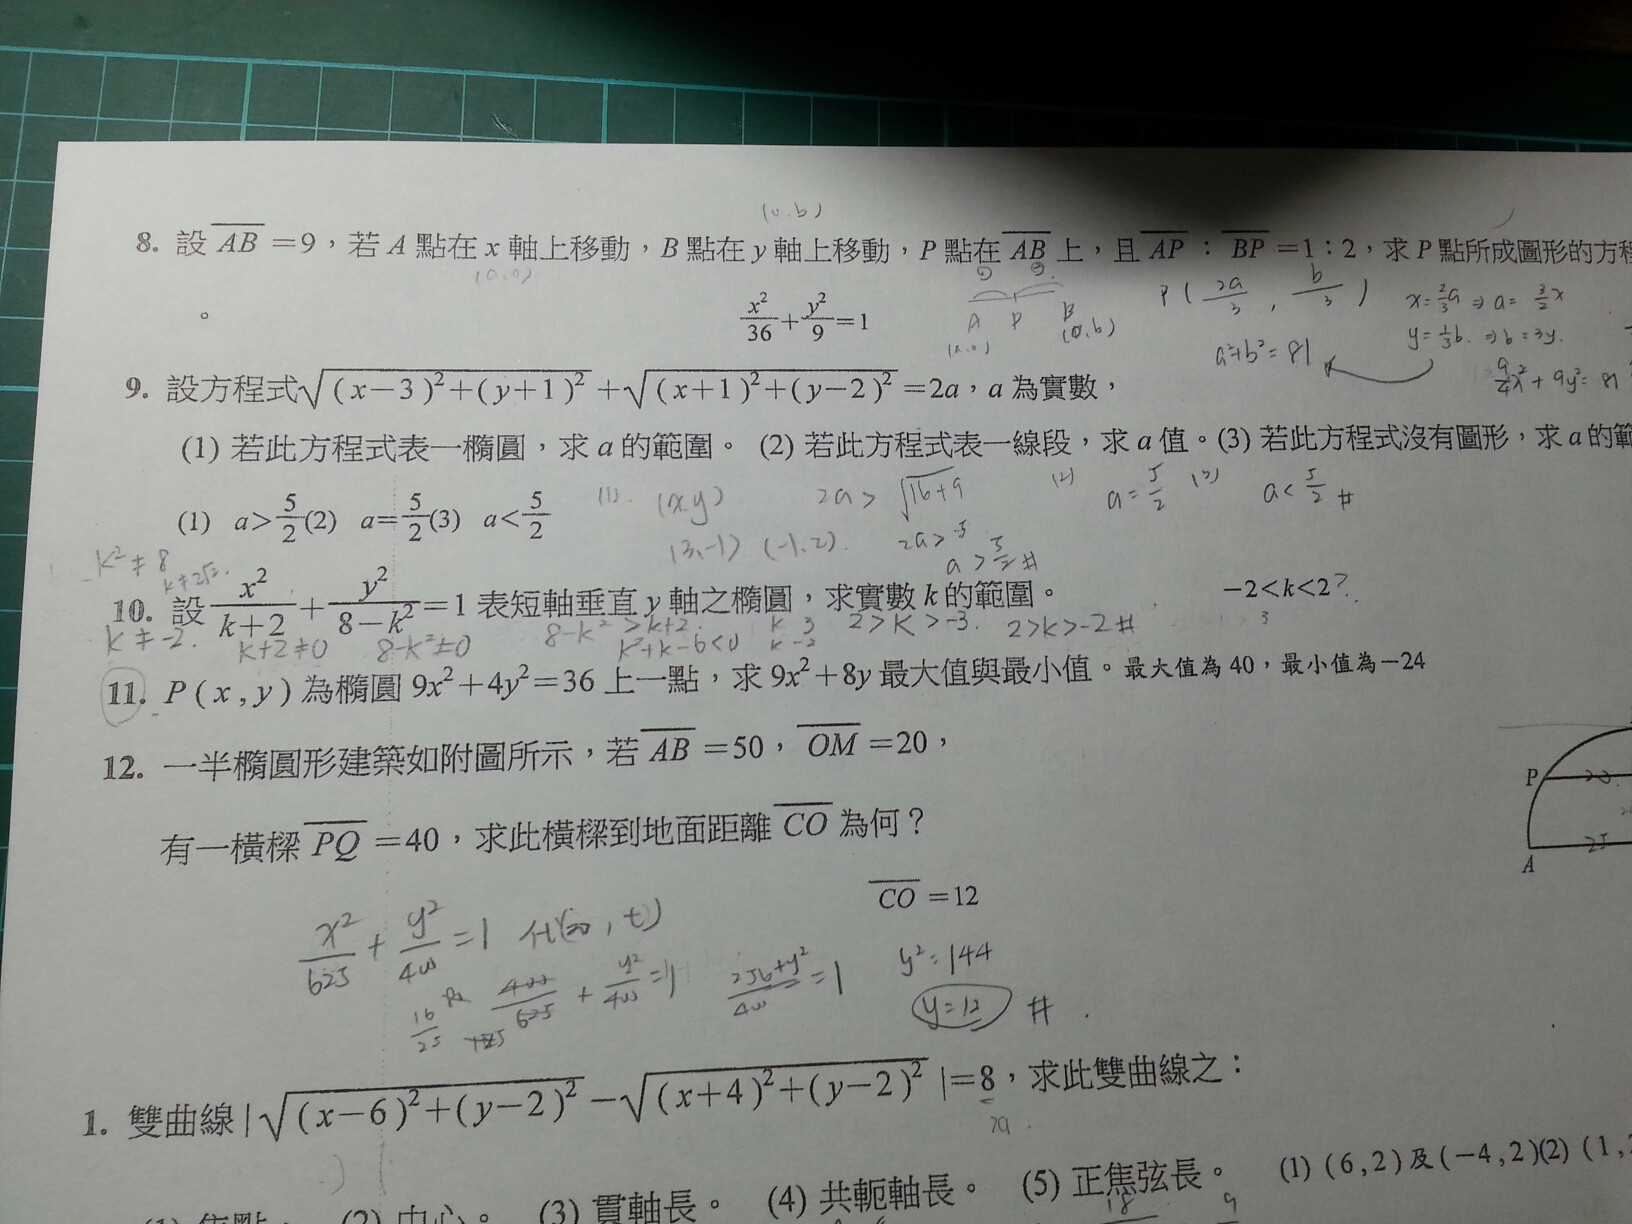 (0,b)
8. 設 AB =9，若 A 點在 x 軸上移動，B 點在 y 軸上移動，P 點在 AB 上，且 AP : BP =1：2，求 P 點所成圖形的方程
(a,0)
。
x²/36 + y²/9 =1
A P B
(a,0) (0,b)
P ( 2a/3 , b/3 )
x= 2/3 a ⇒ a= 3/2 x
y= 1/3 b. ⇒ b=3y.
a²+b²=81
9/4 x²+9y²=81
9. 設方程式 √(x−3)²+(y+1)² + √(x+1)²+(y−2)² =2a，a 為實數，
(1) 若此方程式表一橢圓，求 a 的範圍。 (2) 若此方程式表一線段，求 a 值。(3) 若此方程式沒有圖形，求 a 的範
(1) a> 5/2 (2) a= 5/2 (3) a< 5/2
(1). (x,y) 2a > √16+9 (2) a= 5/2 a< 5/2 #
(3,-1) (-1,2). 2a>5
a > 5/2 #
k²≠8
k≠2√2.
10. 設 x²/k+2 + y²/8−k² =1 表短軸垂直 y 軸之橢圓，求實數 k 的範圍。 −2<k<2?
k≠-2. k+2≠0 8-k²≠0 8-k²>k+2. k²+k-6<0 k 3 k -2 2>k>-3. 2>k>-2 #
11. P(x,y) 為橢圓 9x²+4y²=36 上一點，求 9x²+8y 最大值與最小值。最大值為 40，最小值為−24
12. 一半橢圓形建築如附圖所示，若 AB =50，OM =20，
P
有一橫樑 PQ =40，求此橫樑到地面距離 CO 為何？
25
A
CO =12
x²/625 + y²/400 =1 代(20,t)
400/625 + y²/400 =1 256+y²/400 =1 y²=144
16/25
y=12 #
1. 雙曲線 | √(x−6)²+(y−2)² − √(x+4)²+(y−2)² |=8，求此雙曲線之：
2a.
(1) 焦點。 (2) 中心。 (3) 貫軸長。 (4) 共軛軸長。 (5) 正焦弦長。 (1) (6,2)及(−4,2)(2) (1,
18 9